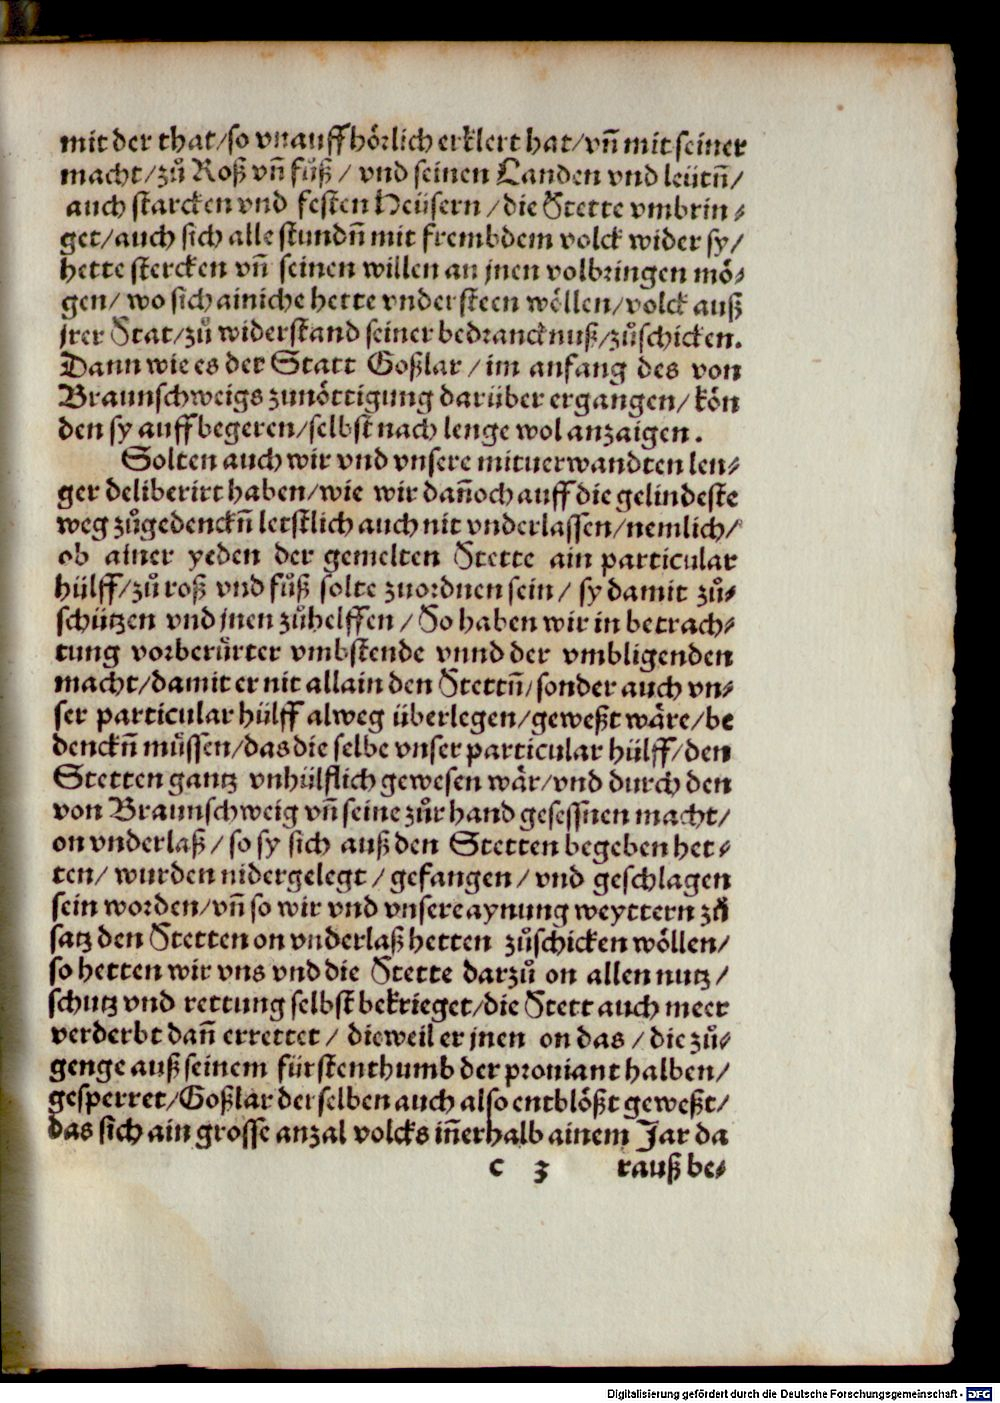 mit der that/so vnauffhörlich erklert hat/vñ mit seiner
macht/zů Roß vñ fůß/ vnd seinen Landen vnd leütñ/
auch starcken vnd festen Heüsern/die Stette vmbrin⸗
get/auch sich alle stundñ mit frembdem volck wider sy/
hette stercken vñ seinen willen an jnen volbringen mö⸗
gen/ wo sich ainiche hette vndersteen wöllen/volck auß
jrer Stat/zů widerstand seiner bedrancknuß/zůschicken.
Dann wie es der Statt Goßlar/im anfang des von
Braunschweigs zunöttigung darüber ergangen/kön
den sy auff begeren/selbst nach lenge wol anzaigen.
Solten auch wir vnd vnsere mituerwandten len⸗
ger deliberirt haben/wie wir dañoch auff die gelindeste
weg zůgedenckñ letstlich auch nit vnderlassen/nemlich/
ob ainer yeden der gemelten Stette ain particular
hülff/zů roß vnd fůß solte zuordnen sein/ sy damit zů⸗
schützen vnd jnen zůhelffen/ So haben wir in betrach⸗
tung vorberürter vmbstende vnnd der vmbligenden
macht/damit er nit allain den Stettñ/sonder auch vn⸗
ser particular hülff alweg überlegen/geweßt wäre/be
denckñ müssen/das die selbe vnser particular hülff/den
Stetten gantz vnhülflich gewesen wär/vnd durch den
von Braunschweig vñ seine zůr hand gesessnen macht/
on vnderlaß/so sy sich auß den Stetten begeben het⸗
ten/ wurden nidergelegt/gefangen/vnd geschlagen
sein worden/vñ so wir vnd vnsere aynung weyttern zů
satz den Stetten on vnderlaß hetten zůschicken wöllen/
so hetten wir vns vnd die Stette darzů on allen nutz/
schutz vnd rettung selbst bekrieget/die Stett auch meer
verderbt dañ errettet/ dieweil er jnen on das/die zů⸗
genge auß seinem fürstenthumb der prouiant halben/
gesperret/Goßlar derselben auch also entblößt geweßt/
das sich ain grosse anzal volcks iñerhalb ainem Jar da
c 3 rauß be⸗
Digitalisierung gefördert durch die Deutsche Forschungsgemeinschaft - DFG